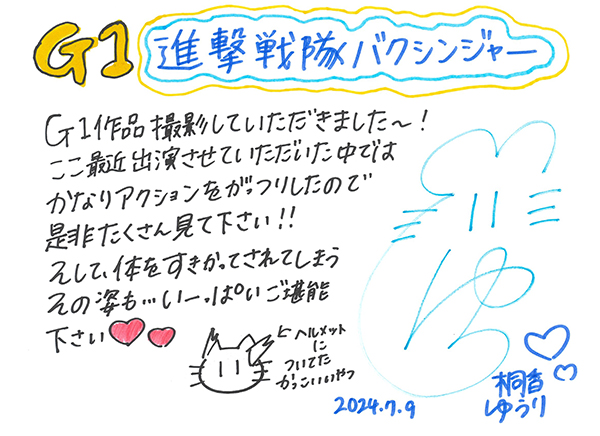 G1 進撃戦隊バクシンジャー
G1作品撮影していただきました〜！
ここ最近出演させていただいた中では
かなりアクションをがっつりしたので
是非たくさん見て下さい!!
そして、体をすきかってされてしまう
その姿も…いーっぱいご堪能
下さい
←ヘルメット
に
ついてた
かっこいいやつ
ゆ
2024.7.9
桐香
ゆうり